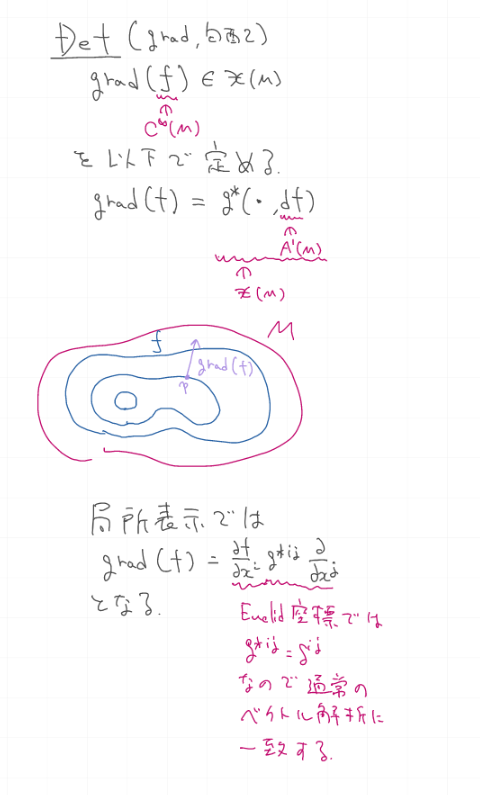 Def (grad, 勾配)
grad(f) ∈ 𝔛(M)
C^∞(M)
を以下で定める.
grad(f) = g*(・, df)
A¹(M)
𝔛(M)
M
f
grad(f)
p
局所表示では
grad(f) = ∂f/∂xⁱ g*ⁱʲ ∂/∂xʲ
となる.
Euclid座標では
g*ⁱʲ = δⁱʲ
なので通常の
ベクトル解析に
一致する.